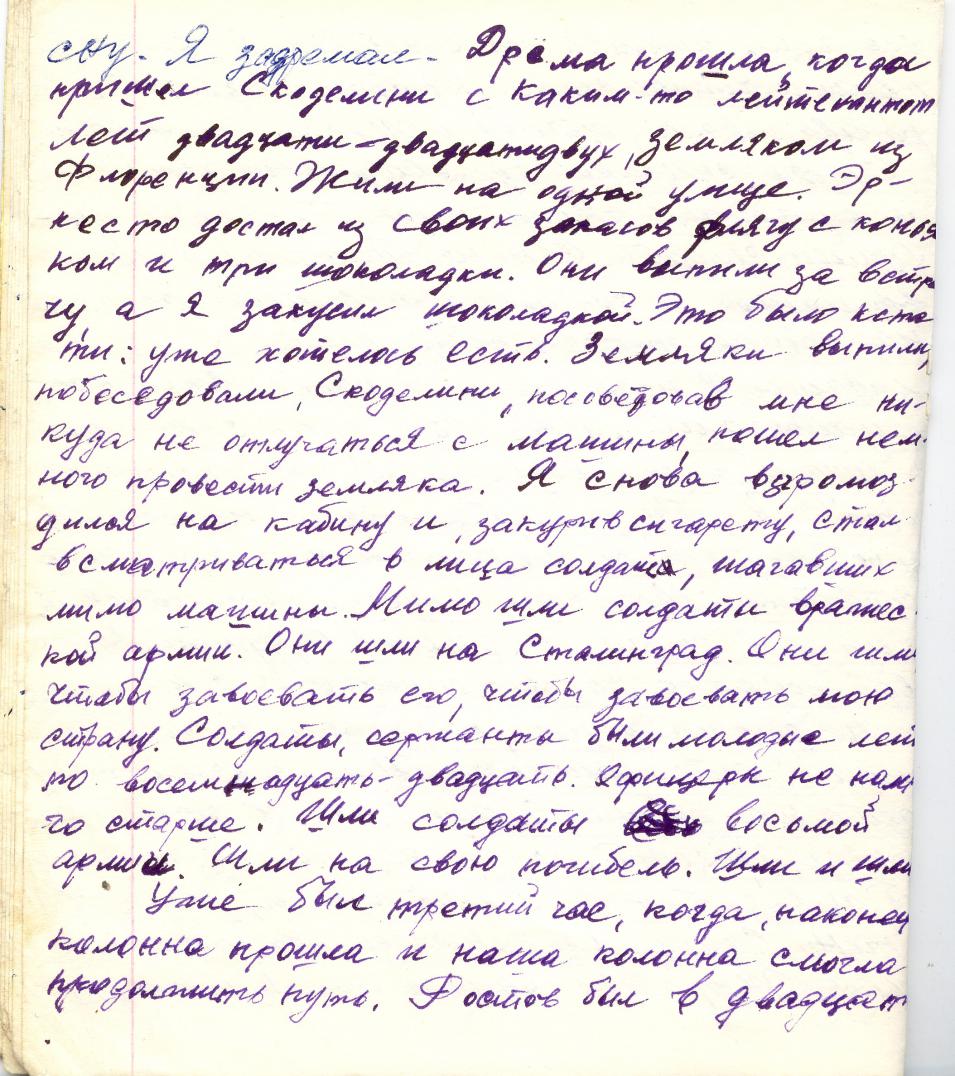 сну. Я задремал. Дрема прошла, когда
пришел Скоделини с каким-то лейтенантом
лет двадцати-двадцатидвух, земляком из
Флоренции. Жили на одной улице. Эр-
несто достал из своих запасов флягу с конья
ком и три шоколадки. Они выпили за встре
чу, а я закусил шоколадкой. Это было кста
ти: уже хотелось есть. Земляки выпили,
побеседовали, Скоделини, посоветовав мне ни-
куда не отлучаться с машины, пошел нем-
ного провести земляка. Я снова взгромоз-
дился на кабину и, закурив сигарету, стал
всматриваться в лица солдат, шагавших
мимо машины. Мимо шли солдаты вражес-
кой армии. Они шли на Сталинград. Они шли
чтобы завоевать его, чтобы завоевать мою
страну. Солдаты, сержанты были молодые лет
по восемнадцать-двадцать. Офицеры не нам
го старше. Шли солдаты восьмой
армии. Шли на свою погибель. Шли и шли
Уже был третий час, когда, наконец
колонна прошла и наша колонна смогла
продолжить путь. Ростов был в двадцат